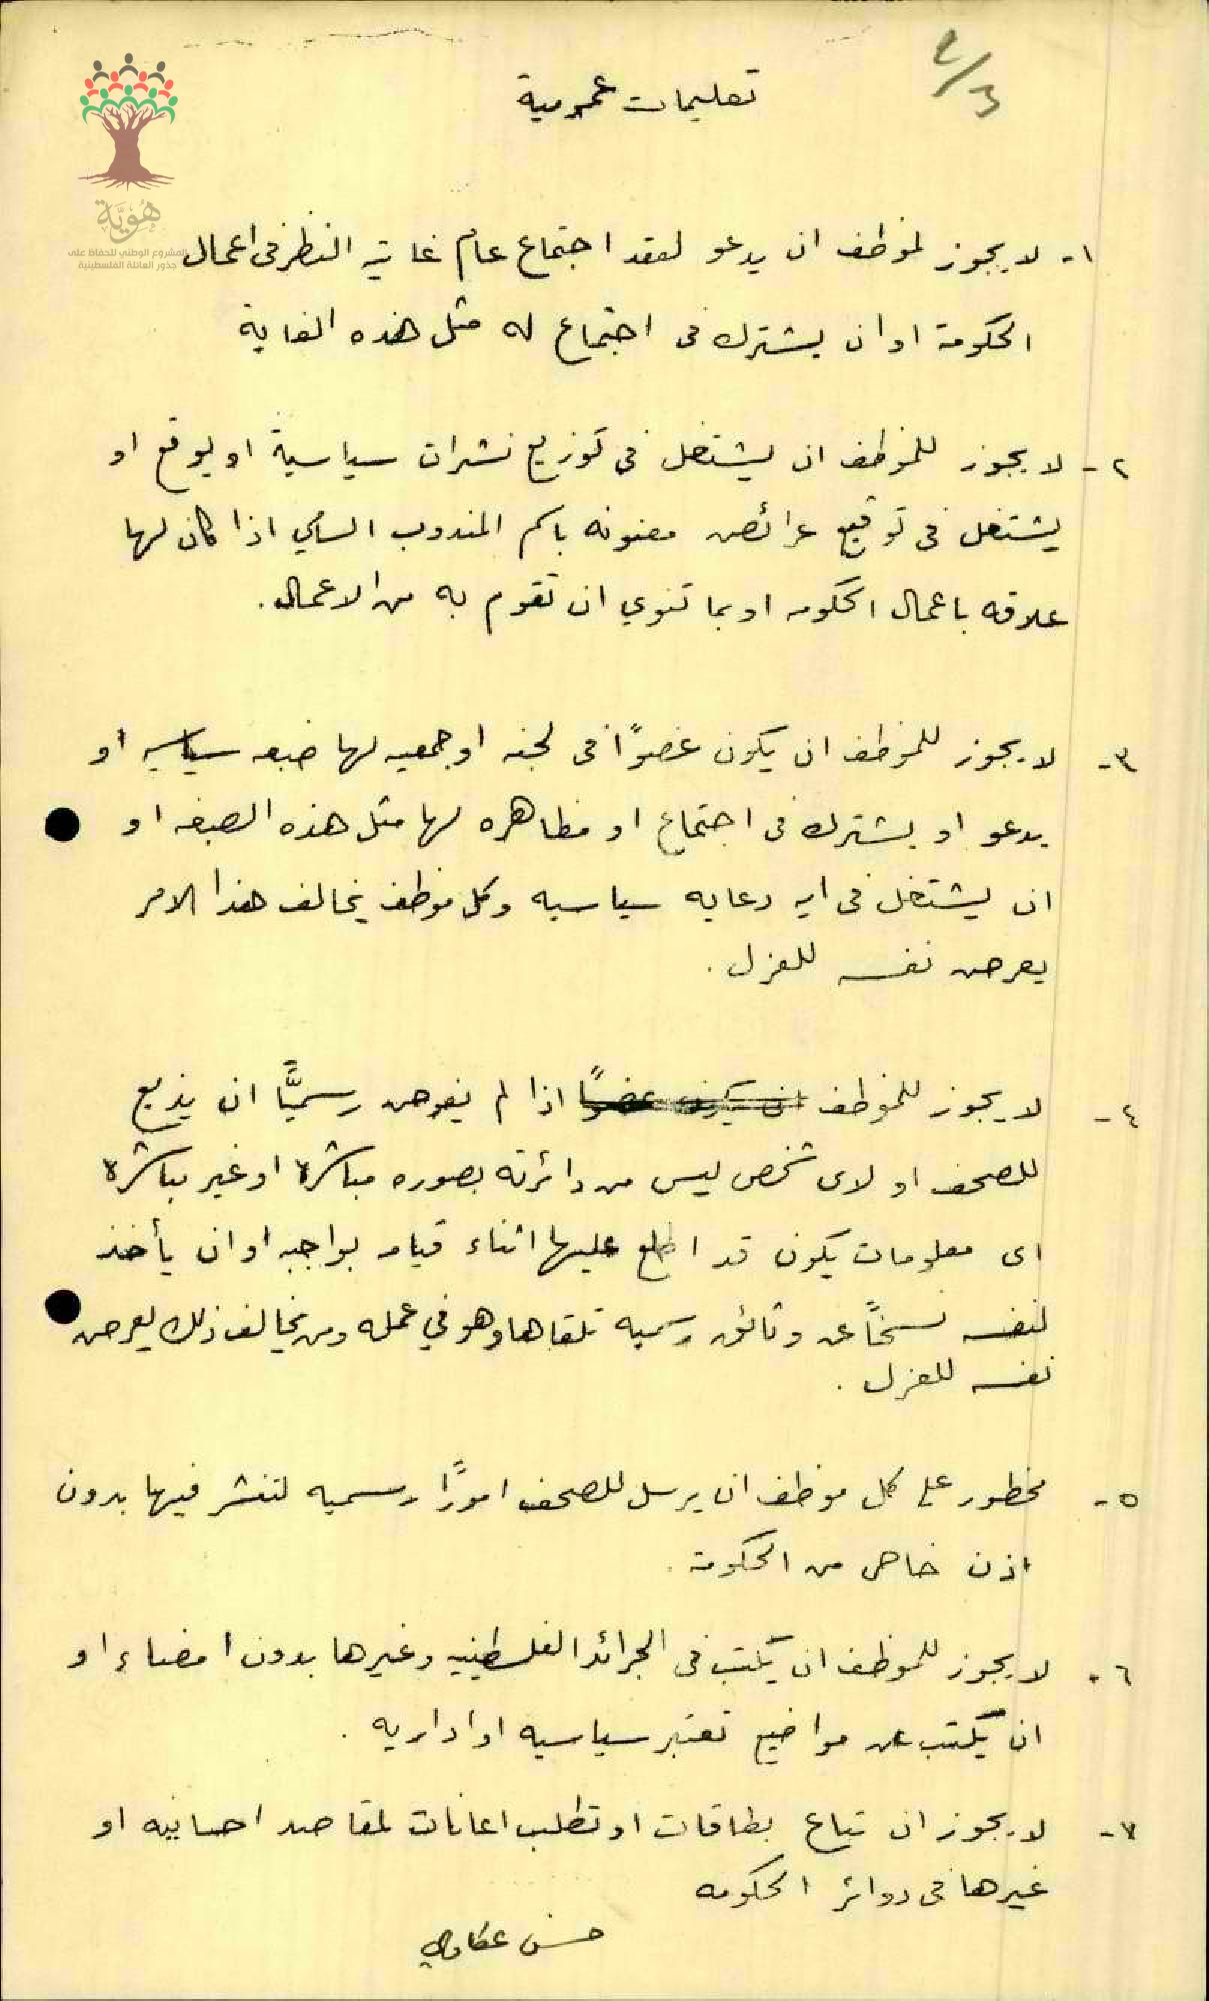 ٢/٣
تعليمات عمومية
هُوِيَّة
المشروع الوطني للحفاظ على
جذور العائلة الفلسطينية
١- لا يجوز لموظف ان يدعو لعقد اجتماع عام غايته النظر في اعمال
الحكومة او ان يشترك في اجتماع له مثل هذه الغاية
٢- لا يجوز للموظف ان يشتغل في توزيع نشرات سياسية او يوقع او
يشتغل في توقيع عرائض معنونه باسم المندوب السامي اذا كان لها
علاقه باعمال الحكومه او بما تنوي ان تقوم به من الاعمال.
٣- لا يجوز للموظف ان يكون عضوًا في لجنه او جمعيه لها صبغه سياسيه او
يدعو او يشترك في اجتماع او مظاهره لها مثل هذه الصبغه او
ان يشتغل في ايه دعايه سياسيه وكل موظف يخالف هذا الامر
يعرض نفسه للعزل.
٤- لا يجوز للموظف ان يكون عضوًا اذا لم يفوض رسميًّا ان يذيع
للصحف او لاى شخص ليس من دائرته بصوره مباشرة او غير مباشرة
اى معلومات يكون قد اطلع عليها اثناء قيامه بواجبه او ان يأخذ
لنفسه نسخًا عن وثائق رسميه تلقاها وهو في عمله ومن يخالف ذلك يعرض
نفسه للعزل.
٥- محظور على كل موظف ان يرسل للصحف امورًا رسميه لتنشر فيها بدون
اذن خاص من الحكومة.
٦- لا يجوز للموظف ان يكتب في الجرائد الفلسطينيه وغيرها بدون امضاء او
ان يكتب عن مواضيع تعتبر سياسيه او اداريه.
٧- لا يجوز ان تباع بطاقات او تطلب اعانات لمقاصد احسانيه او
غيرها في دوائر الحكومه
حسن